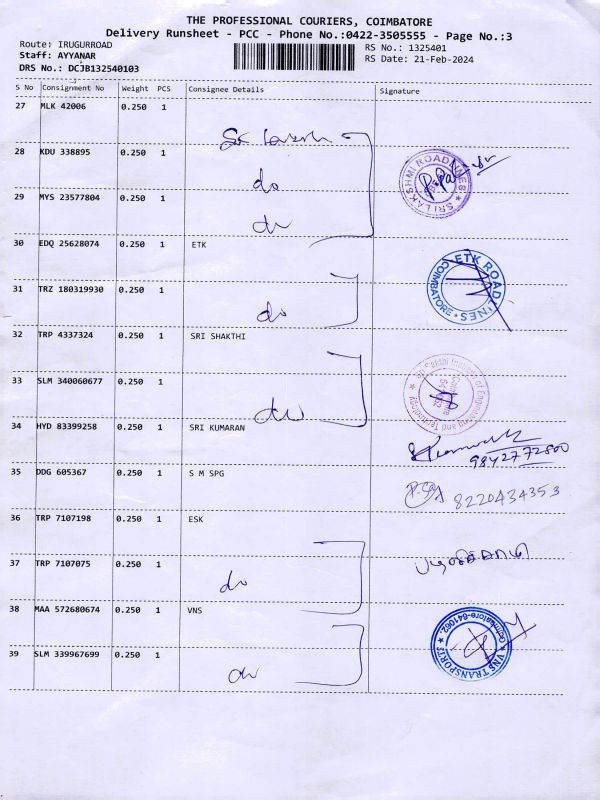 THE PROFESSIONAL COURIERS, COIMBATORE
Delivery Runsheet - PCC - Phone No.:0422-3505555 - Page No.:3
Route: IRUGURROAD
RS No.: 1325401
Staff: AYYANAR
RS Date: 21-Feb-2024
DRS No.: DCJB132540103
S No Consignment No Weight PCS Consignee Details Signature
27 MLK 42006 0.250 1
28 KDU 338895 0.250 1
do
SRI LAKSHMI ROADLINES
29 MYS 23577804 0.250 1
do
30 EDQ 25628074 0.250 1 ETK
ETK ROADLINES
COIMBATORE
31 TRZ 180319930 0.250 1
do
32 TRP 4337324 0.250 1 SRI SHAKTHI
33 SLM 340060677 0.250 1
do
Engineering and Technology
34 HYD 83399258 0.250 1 SRI KUMARAN
9842772800
35 DDG 605367 0.250 1 S M SPG
8220434353
36 TRP 7107198 0.250 1 ESK
37 TRP 7107075 0.250 1
do
38 MAA 572680674 0.250 1 VNS
VNS TRANSPORTS
Coimbatore-641062
39 SLM 339967699 0.250 1
do